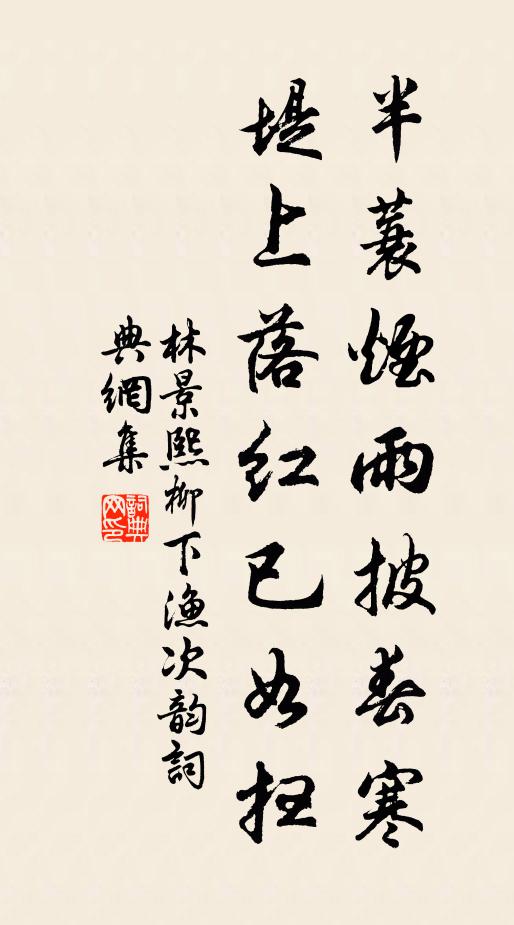 半蓑煙雨披春寒
堤上落紅已如掃
林景熙柳下漁次韵詞
典網集
詞典
网印